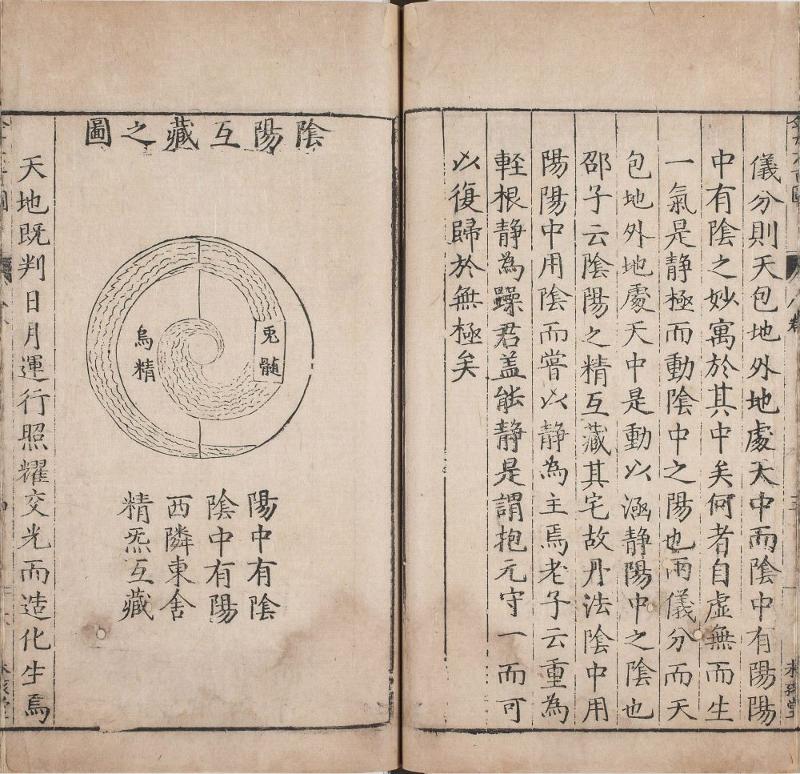 儀分則天包地外地處天中而陰中有陽陽
中有陰之妙寓於其中矣何者自虛無而生
一氣是静極而動陰中之陽也兩儀分而天
包地外地處天中是動以涵静陽中之陰也
邵子云陰陽之精互藏其宅故丹法陰中用
陽陽中用陰而嘗以静為主焉老子云重為
輊根静為躁君盖能静是謂抱元守一而可
以復歸於無極矣
陰陽互藏之圖
兎髄
烏精
陽中有陰
陰中有陽
西隣東舍
精炁互藏
天地既判日月運行照耀交光而造化生焉